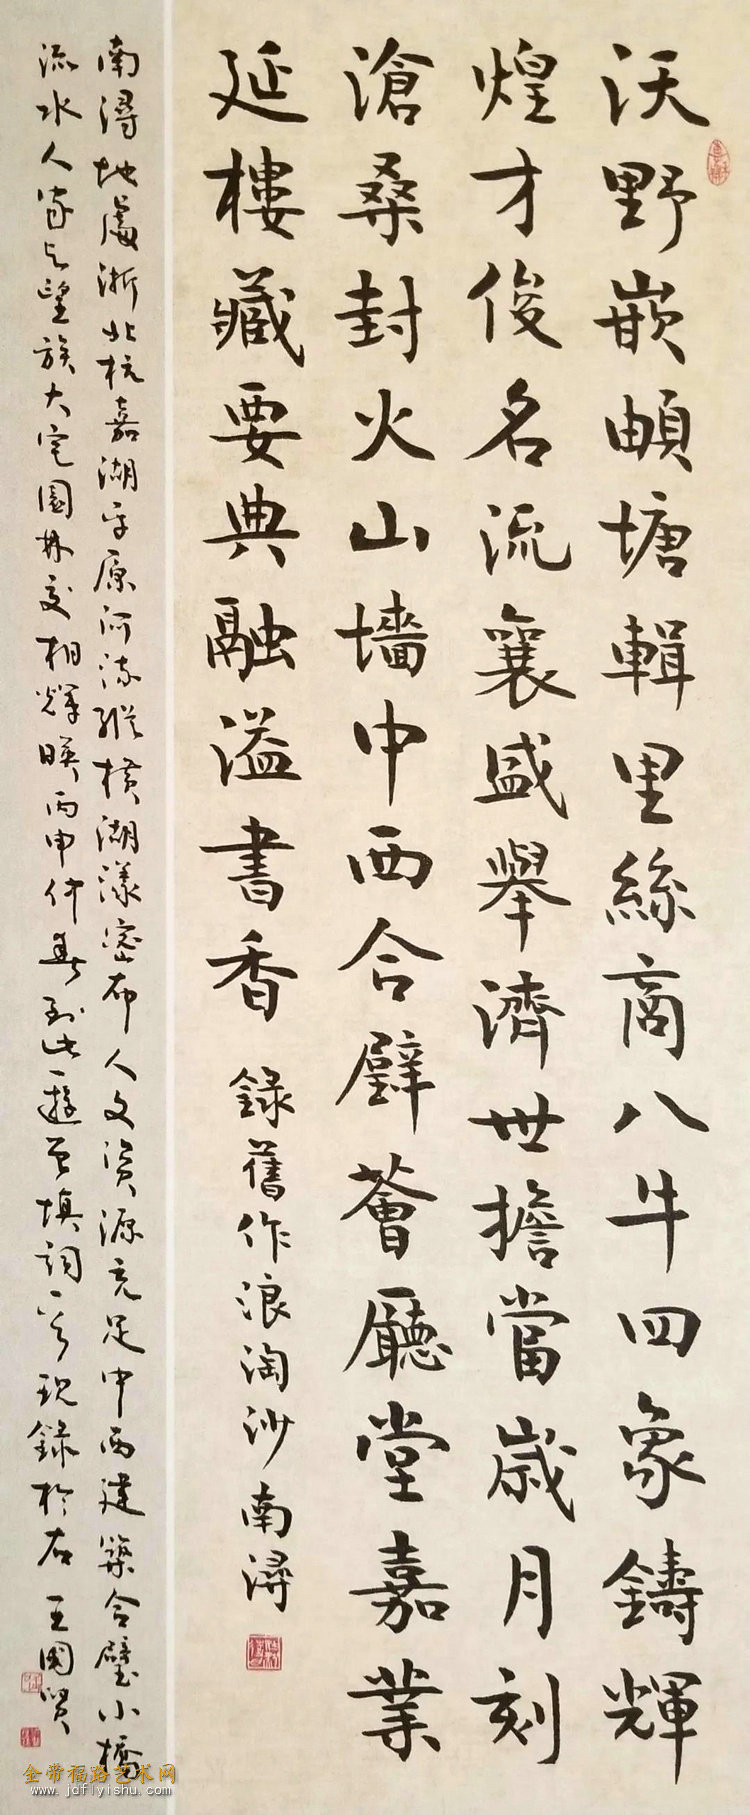 沃野嵌頔塘輯里絲商八牛四象鑄輝
煌才俊名流襄盛舉濟世擔當歲月刻
滄桑封火山墻中西合璧薈廳堂嘉業
延樓藏要典融溢書香 錄舊作浪淘沙南潯
南潯地處浙北杭嘉湖平原河流縱橫湖漾密布人文資源充足中西建築合璧小橋
流水人家與望族大宅園林交相輝映丙申仲春到此一遊曾填詞一首現錄於右 王國賢
金带福路艺术网
www.jdflyishu.com